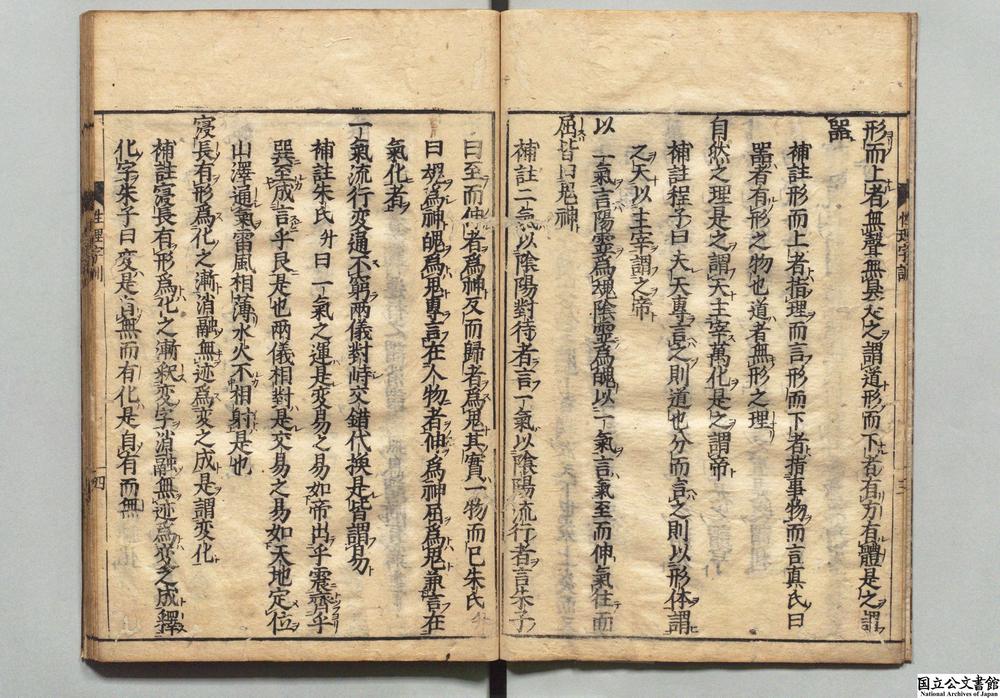 形而上者無聲無臭之謂道形而下者有方有體是之謂
器
補註形而上者指理而言形而下者指事物而言真氏曰
器者有形之物也道者無形之理
自然之理是之謂天主宰萬化是之謂帝
補註程子曰夫天專言之則道也分而言之則以形体謂
之天以主宰謂之帝
以二氣言陽靈為魂陰靈為魄以一氣言氣至而伸氣往而
屈皆曰鬼神
補註二氣以陰陽對待者言一氣以陰陽流行者言朱子
曰至而伸者為神反而歸者為鬼其實一物而已朱氏
曰魂為神魄為鬼專言在人物者伸為神屈為鬼兼言在
氣化者
一氣流行変通不窮兩儀對峙交錯代換是皆謂易
補註朱氏升曰一氣之運是変易之易如帝出乎震齊乎
巽至成言乎艮是也兩儀相對是交易之易如天地定位
山澤通氣雷風相薄水火不相射是也
寖長有形為化之漸消融無迹為変之成是謂変化
補註寖長有形為化之漸釈変字消融無迹為変之成釋
化字朱子曰変是自無而有化是自有而無
性理字訓
四
国立公文書館
National Archives of Japan